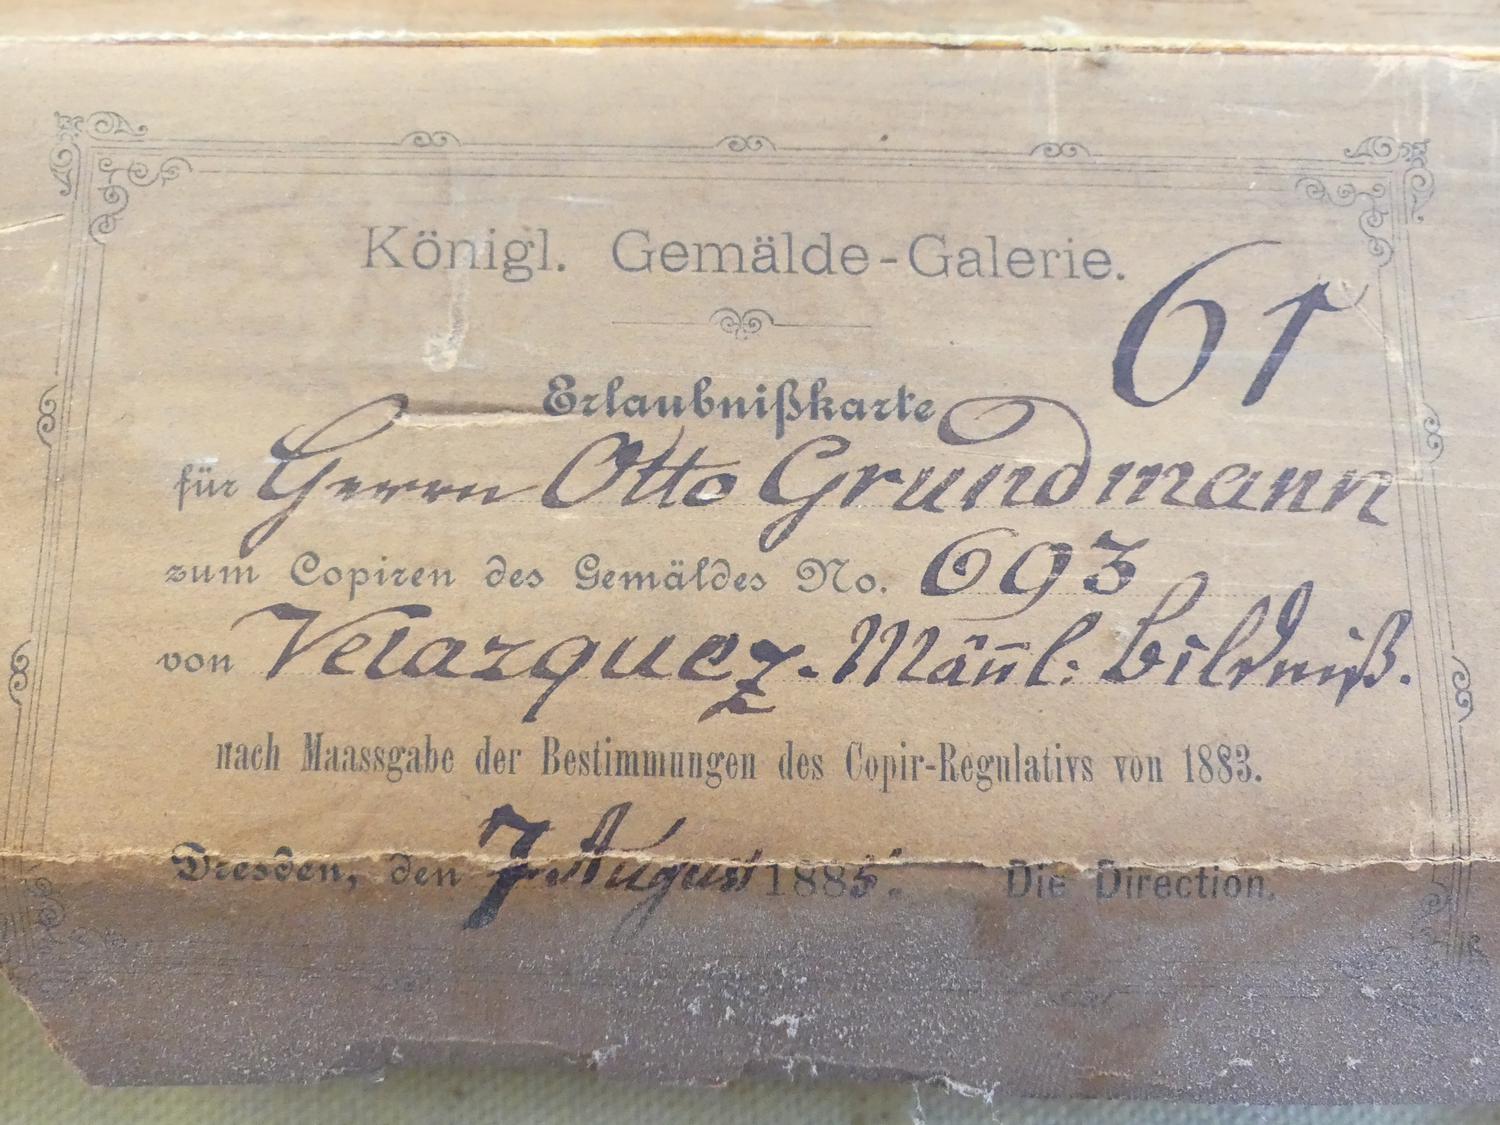 Königl. Gemälde-Galerie.
61
Erlaubnißkarte
für Herrn Otto Grundmann
zum Copiren des Gemäldes No. 693
von Velazquez. Mäñl: Bildniß.
nach Maassgabe der Bestimmungen des Copir-Regulativs von 1883.
Dresden, den 7. August 1885. Die Direction.